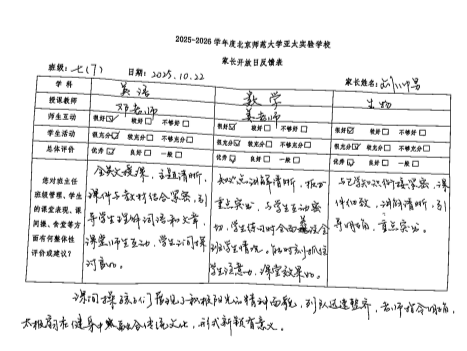 2025-2026 学年度北京师范大学亚太实验学校
家长开放日反馈表
班级：七(7) 日期：2025.10.22 家长姓名：
学科 英语 数学 生物
授课教师 邓老师 姜老师
师生互动 很好☑ 较好□ 不够好□ 很好☑ 较好□ 不够好□ 很好☑ 较好□ 不够好□
学生活动 很充分☑ 较充分□ 不够充分□ 很充分☑ 较充分□ 不够充分□ 很充分☑ 较充分□ 不够充分□
总体评价 优秀☑ 良好□ 一般□ 优秀☑ 良好□ 一般□ 优秀☑ 良好□ 一般□
您对班主任
班级管理、学生
的课堂表现、课
间操、食堂等方
面有何整体性
评价或建议？
全英文授课，主题清晰，
课件与教材结合紧密，引
导学生理解词语和文章，
课堂师生互动，学生之间探
讨高效。
知识点讲解清晰，板书
重点突出，与学生互动密
切，学生练习时全面兼顾全
班学生情况。能时刻抓住
学生注意力，课堂效果好。
与已学知识衔接紧密，课
件细致，讲解清晰，引
导明确，重点突出。
课间操孩子们展现了积极阳光的精神面貌，列队迅速整齐，老师指令明确，
太极扇在健身中融合传统文化，形式新颖有意义。